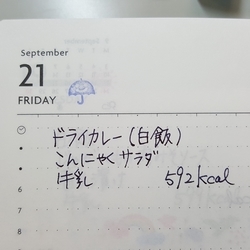 September
21
FRIDAY
ドライカレー(白飯)
こんにゃくサラダ
牛乳 592kcal
6
7
8